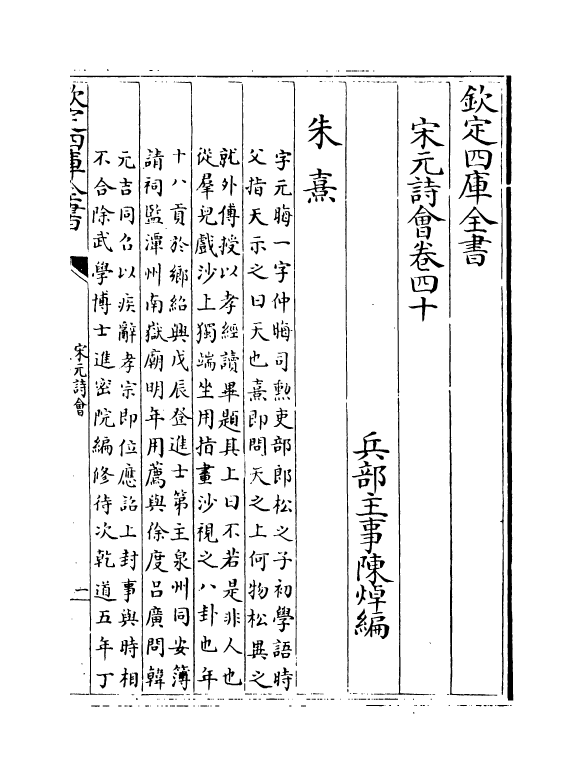 欽定四庫全書
宋元詩會卷四十
兵部主事陳焯編
朱熹
字元晦一字仲晦司勲吏部郎松之子初學語時
父指天示之曰天也熹即問天之上何物松異之
就外傅授以孝經讀畢題其上曰不若是非人也
從羣兒戲沙上獨端坐用指畫沙視之八卦也年
十八貢於鄉紹興戊辰登進士第主泉州同安簿
請祠監潭州南嶽廟明年用薦與徐度吕廣問韓
元吉同召以疾辭孝宗即位應詔上封事與時相
不合除武學博士進密院編修待次乾道五年丁
欽定四庫全書
宋元詩會
一